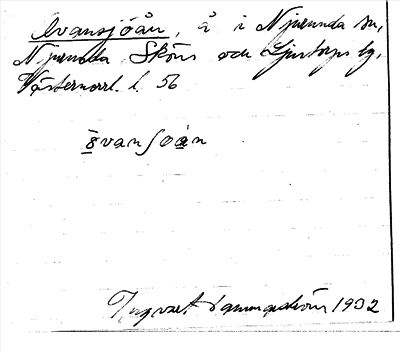 Svansjöån, å i Njurunda sn,
Njurunda, Sköns och Ljustorps tg,
Västernorrl. l. 56
svanʃoan
Ingvart 1932